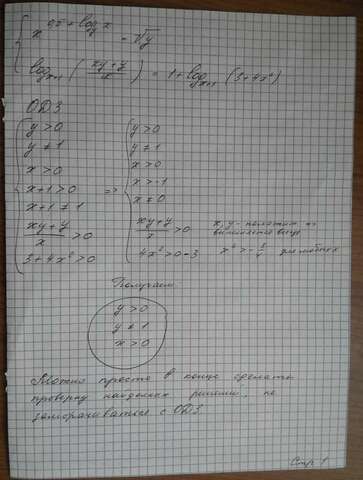 = √y
log_{x+1} ( (xy+y)/x ) = 1 + log_{x+1} (3+4x²)
ОДЗ
y > 0
y ≠ 1
x > 0
x+1 > 0
x+1 ≠ 1
(xy+y)/x > 0
3+4x² > 0
=>
y > 0
y ≠ 1
x > 0
x > -1
x ≠ 0
(xy+y)/x > 0 x, y - положит =>
выполняется всегда
4x² > 0-3 x² > -3/4 для любых
Получаем:
y > 0
y ≠ 1
x > 0
Можно просто в конце сделать
проверку найденных решений, не
заморачиваться с ОДЗ.
Стр 1